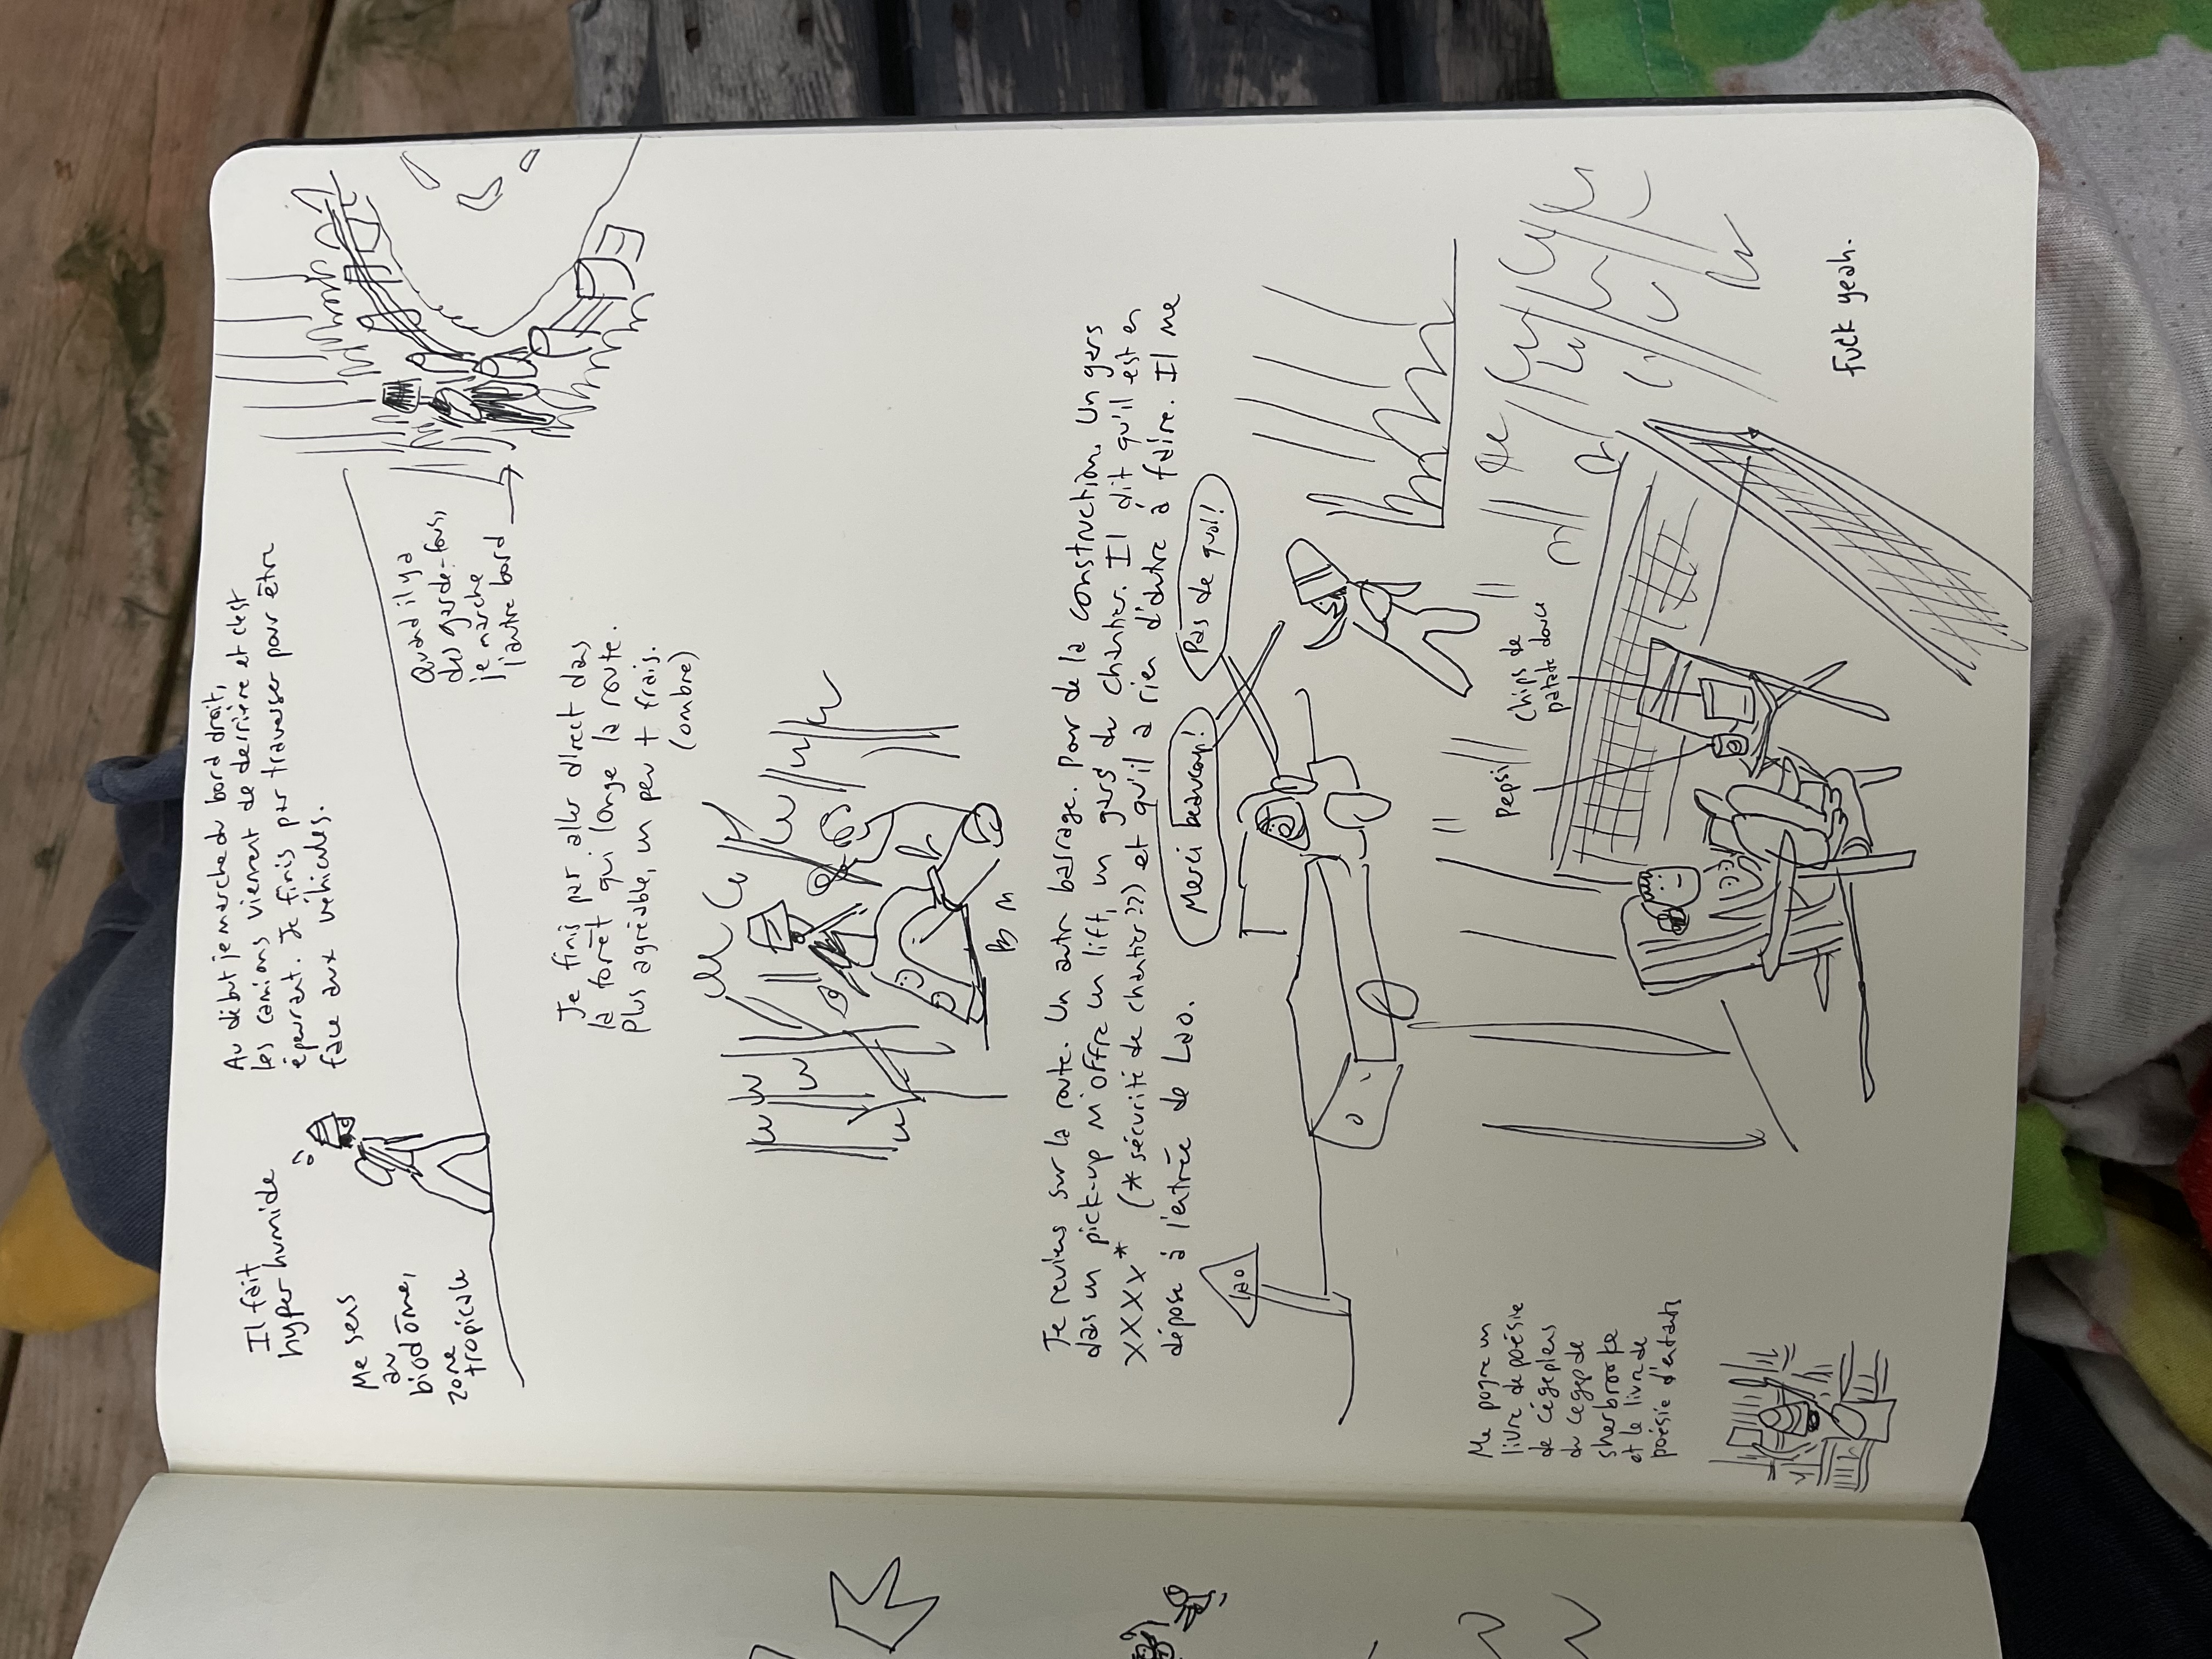 Il fait
hyper humide
Me sens
au
biodôme,
zone
tropicale
Au début je marche du bord droit,
les camions viennent de derrière et c'est
épeurant. Je finis par traverser pour être
face aux véhicules.
Quand il y a
des garde-fous,
je marche
l'autre bord
Je finis par aller direct dans
la forêt qui longe la route.
Plus agréable, un peu + frais.
(ombre)
Je reviens sur la route. Un autre barrage. Pour de la construction. Un gars
dans un pick-up m'offre un lift, un gars du chantier. Il dit qu'il est en
XXXXX* (*sécurité de chantier??) et qu'il a rien d'autre à faire. Il me
dépose à l'entrée de Lao.
Merci beaucoup!
Pas de quoi!
Lao
Me pogne un
livre de poésie
de cégepiens
du cegep de
sherbrooke
et le livre de
poésie d'enfants
pepsi
chips de
patate douce
Fuck yeah.